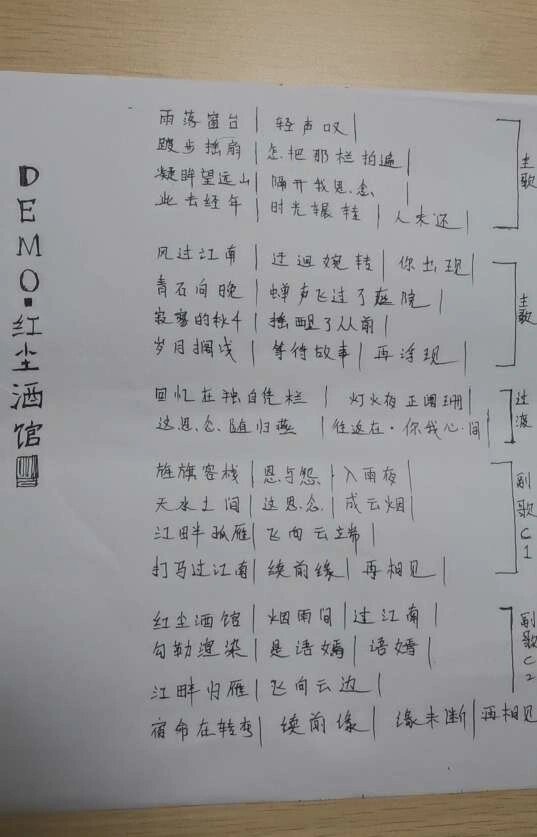 DEMO·红尘酒馆
雨落窗台 | 轻声叹 |
踱步摇扇 | 怎把那栏拍遍 |
凝眸望远山 | 隔开我思念 |
此去经年 | 时光辗转 | 人未还 |
主歌
风过江南 | 迂迴婉转 | 你出现 |
青石向晚 | 蝉声飞过了庭院 |
寂寞的秋千 | 摇醒了从前 |
岁月搁浅 | 等待故事 | 再浮现 |
主歌
回忆在独自凭栏 | 灯火夜正阑珊 |
这思念随归燕 | 往返在·你我心间 |
过渡
旌旗客栈 | 恩与怨 | 入雨夜 |
天水土间 | 这思念 | 成云烟 |
江畔孤雁 | 飞向云端 |
打马过江南 | 续前缘 | 再相见 |
副歌C1
红尘酒馆 | 烟雨间 | 过江南 |
勾勒渲染 | 是语嫣 | 语嫣 |
江畔归雁 | 飞向云边 |
宿命在转弯 | 续前缘 | 缘未断 | 再相见
副歌C2